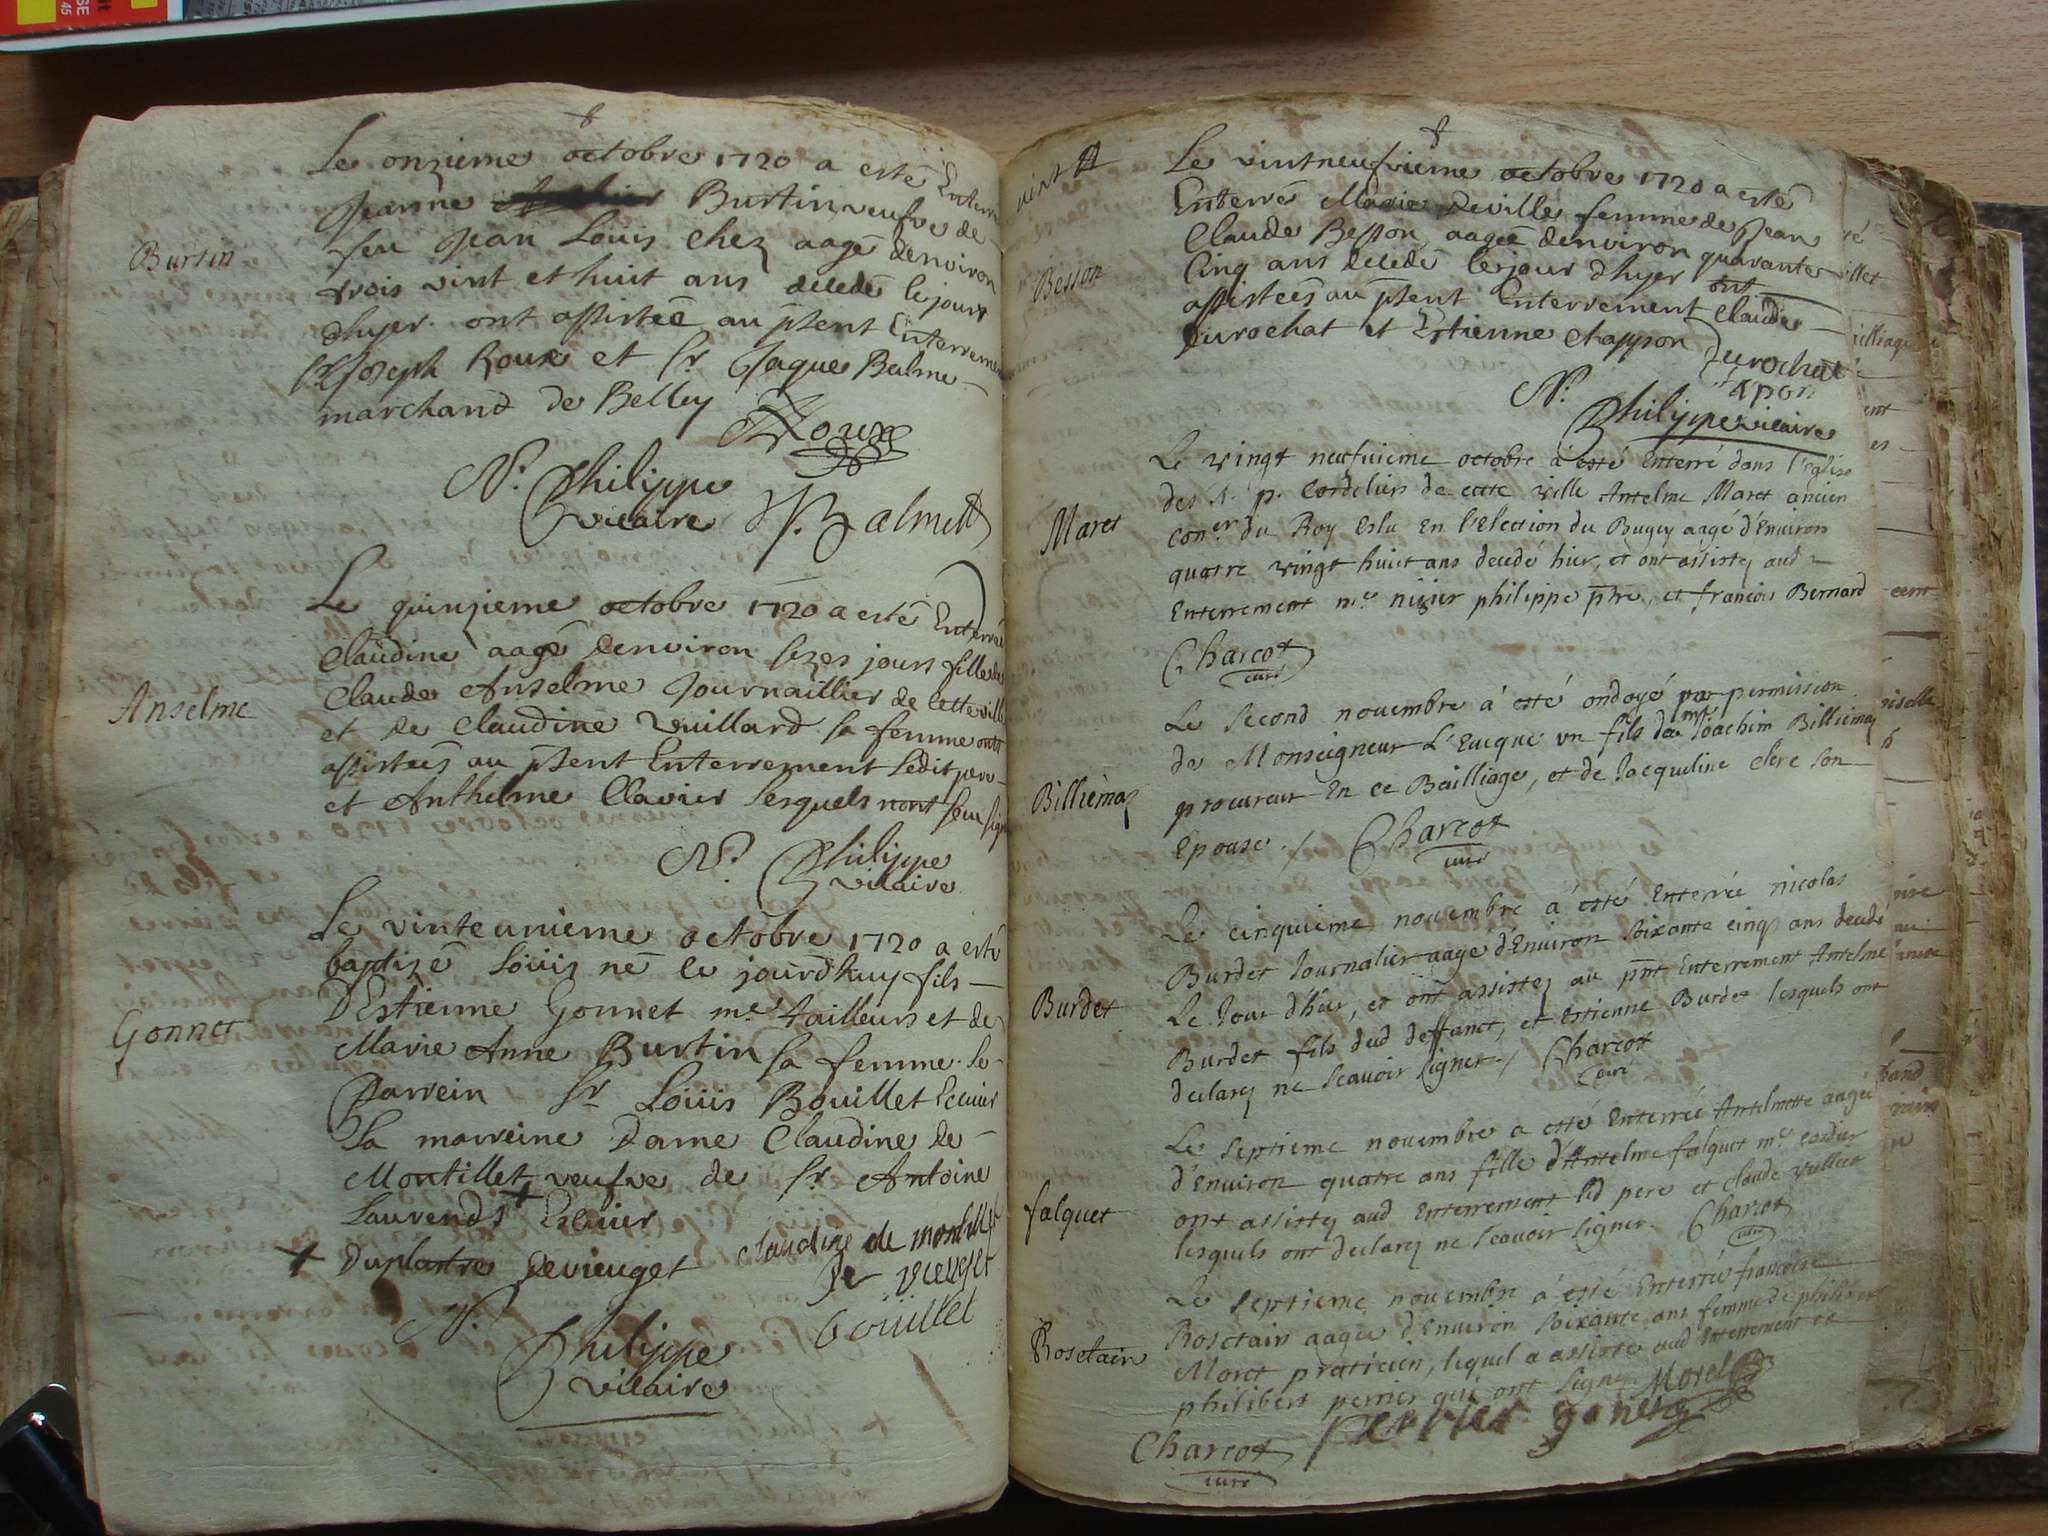 Burtin
Le onzieme octobre 1720 a esté Enterré
Jeanne Burtin veufve de
feu Jean Louis Chez aagé denviron
trois vint et huit ans decedé le jour
dhyer ont assistée au pñt Enterrement
Sr Joseph Roux et Sr Jaques Balme
marchand de Belley
Roux
N. Philippe
vicaire
Balmett
Anselme
Le quinzieme octobre 1720 a esté Enterrée
Claudine aagé denviron sezes jours fille de
Claude Anselme Journaillier de cette ville
et de Claudine Vuillard sa femme ont
assistees au pñt Enterrement ledit pere
et Anthelme Clavier lesquels nont sceu signe
N. Philippe
vicaire
Gonnet
Le vinteunieme octobre 1720 a esté
baptizé Loüis né le jourdhuy fils
D'Estienne Gonnet me tailleurs et de
Marie Anne Burtin sa femme le
Parrein Sr Loüis Bouillet Ecuier
La marreine Dame Claudine de
Montillet veufve de Sr Antoine
Laurend + Ecuier
+ Duplastre devieuget
claudine de montillet
De vieuget
bouillet
N. Philippe
vicaire
vint
Besson
Le vintneufvieme octobre 1720 a esté
Enterré Marie Deville femme de Jean
Claude Besson aagée denviron quarante
Cinq ans decedé le jour dhyer ont
assistees au pñt Enterrement Claude
Durochat et Estienne Chappon
Durochat
N. Philippe vicaire
Maret
Le vingt neufuieme octobre a esté Enterré dans l'Eglise
des R. p. Cordeliers de cette ville Antelme Maret ancien
Coner du Roy Eslu En l'Election du Bugey aagé d'Environ
quatre vingt huict ans decedé hier, et ont assistez aud
Enterrement me nizier philippe pbre, et francois Bernard
Charcot
curé
Billiemaz
Le second novembre a esté ondoyé par permission
de Monseigneur L'Eueque vn fils de mre Joachim Billiemaz
procureur En ce Bailliage, et de Jacqueline clerc son
Epouse ./ Charcot
curé
Burdet
Le cinquieme novembre a esté Enterrée nicolas
Burdet Journalier aagé d'Environ soixante cinq ans decedé
Le Jour d'hier, et ont assistez au pnt Enterrement Antelme
Burdet fils dud deffunct, et Estienne Burdet lesquels ont
declarez ne scavoir signer ./ Charcot
curé
falquet
Le septieme novembre a esté Enterrée Antelmette aagée
d'Environ quatre ans fille d'Antelme falquet me cordier
ont assistez aud Enterrement led pere et claude vulliet
lesquels ont declarez ne scavoir signer. Charcot
curé
Rosetain
Le septieme novembre a esté Enterrée francoise
Rosetain aagée d'Environ soixante ans femme de philibert
Moret praticien, lequel a assisté aud Enterrement et
philibert perrier qui ont signez
Charcot
curé